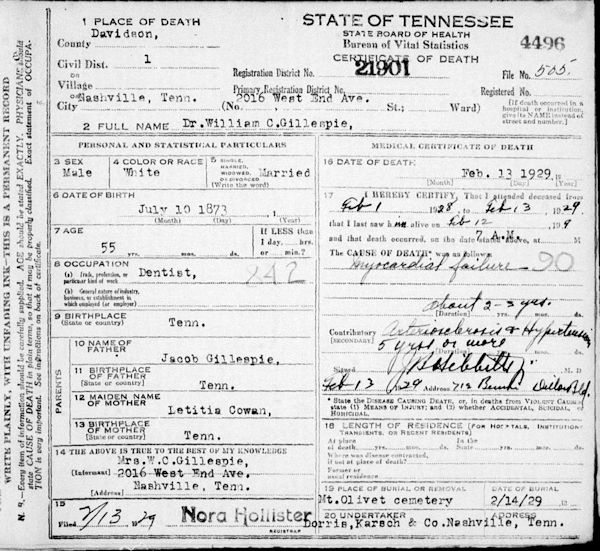 1 PLACE OF DEATH
Davidson,
County
Civil Dist. 1
or
Village
or
City Nashville, Tenn.
STATE OF TENNESSEE
STATE BOARD OF HEALTH
Bureau of Vital Statistics
CERTIFICATE OF DEATH
4496
21901
Registration District No.
File No. 505.
Primary Registration District No.
Registered No.
(No. 2016 West End Ave. St.; Ward)
[If death occurred in a hospital or institution, give its NAME instead of street and number.]
2 FULL NAME Dr.William C.Gillespie,
PERSONAL AND STATISTICAL PARTICULARS
3 SEX
Male
4 COLOR OR RACE
White
5 SINGLE,
MARRIED,
WIDOWED,
OR DIVORCED
(Write the word)
Married
6 DATE OF BIRTH
July 10 1873
(Month) (Day) (Year)
7 AGE
55
yrs. mos. ds.
If LESS than
1 day, hrs.
or min.?
8 OCCUPATION
(a) Trade, profession, or
particular kind of work
Dentist,
242
(b) General nature of industry,
business, or establishment in
which employed (or employer)
9 BIRTHPLACE
(State or country)
Tenn.
PARENTS
10 NAME OF
FATHER
Jacob Gillespie,
11 BIRTHPLACE
OF FATHER
(State or country)
Tenn.
12 MAIDEN NAME
OF MOTHER
Letitia Cowan,
13 BIRTHPLACE
OF MOTHER
(State or country)
Tenn.
14 THE ABOVE IS TRUE TO THE BEST OF MY KNOWLEDGE
Mrs.W.C.Gillespie,
(Informant) 2016 West End Ave.
Nashville, Tenn.
[Address]
15
Filed 2/13 1929
Nora Hollister
REGISTRAR
MEDICAL CERTIFICATE OF DEATH
16 DATE OF DEATH
Feb. 13 1929.
(Month) (Day) (Year)
17 I HEREBY CERTIFY, That I attended deceased from
Feb 1 1928 to Feb 13 1929
that I last saw him alive on Feb 12 1929
and that death occurred, on the date stated above, at 7 A.M.
The CAUSE OF DEATH* was as follows:
Myocardial failure 90
about 2-3 yrs.
(Duration) yrs. mos. ds.
Contributory Arteriosclerosis & Hypertension
(SECONDARY)
5 yrs or more
(Duration) yrs. mos. ds.
Signed M. D
Feb 13 1929 Address 712
* State the DISEASE CAUSING DEATH, or, in deaths from VIOLENT CAUSES
state (1) MEANS OF INJURY; and (2) whether ACCIDENTAL, SUICIDAL, or
HOMICIDAL.
18 LENGTH OF RESIDENCE (FOR HOSPITALS, INSTITUTIONS,
TRANSIENTS, OR RECENT RESIDENTS)
At place
of death yrs. mos. ds.
In the
State yrs. mos. ds.
Where was disease contracted,
if not at place of death?
Former or
usual residence
19 PLACE OF BURIAL OR REMOVAL
Mt.Olivet cemetery
DATE OF BURIAL
2/14/29
20 UNDERTAKER ADDRESS
Dorris,Karsch & Co.Nashville, Tenn.
WRITE PLAINLY, WITH UNFADING INK—THIS IS A PERMANENT RECORD
N. B.—Every item of information should be carefully supplied. AGE should be stated EXACTLY. PHYSICIANS should
state CAUSE OF DEATH in plain terms, so that it may be properly classified. Exact statement of OCCUPA-
TION is very important. See instructions on back of certificate.